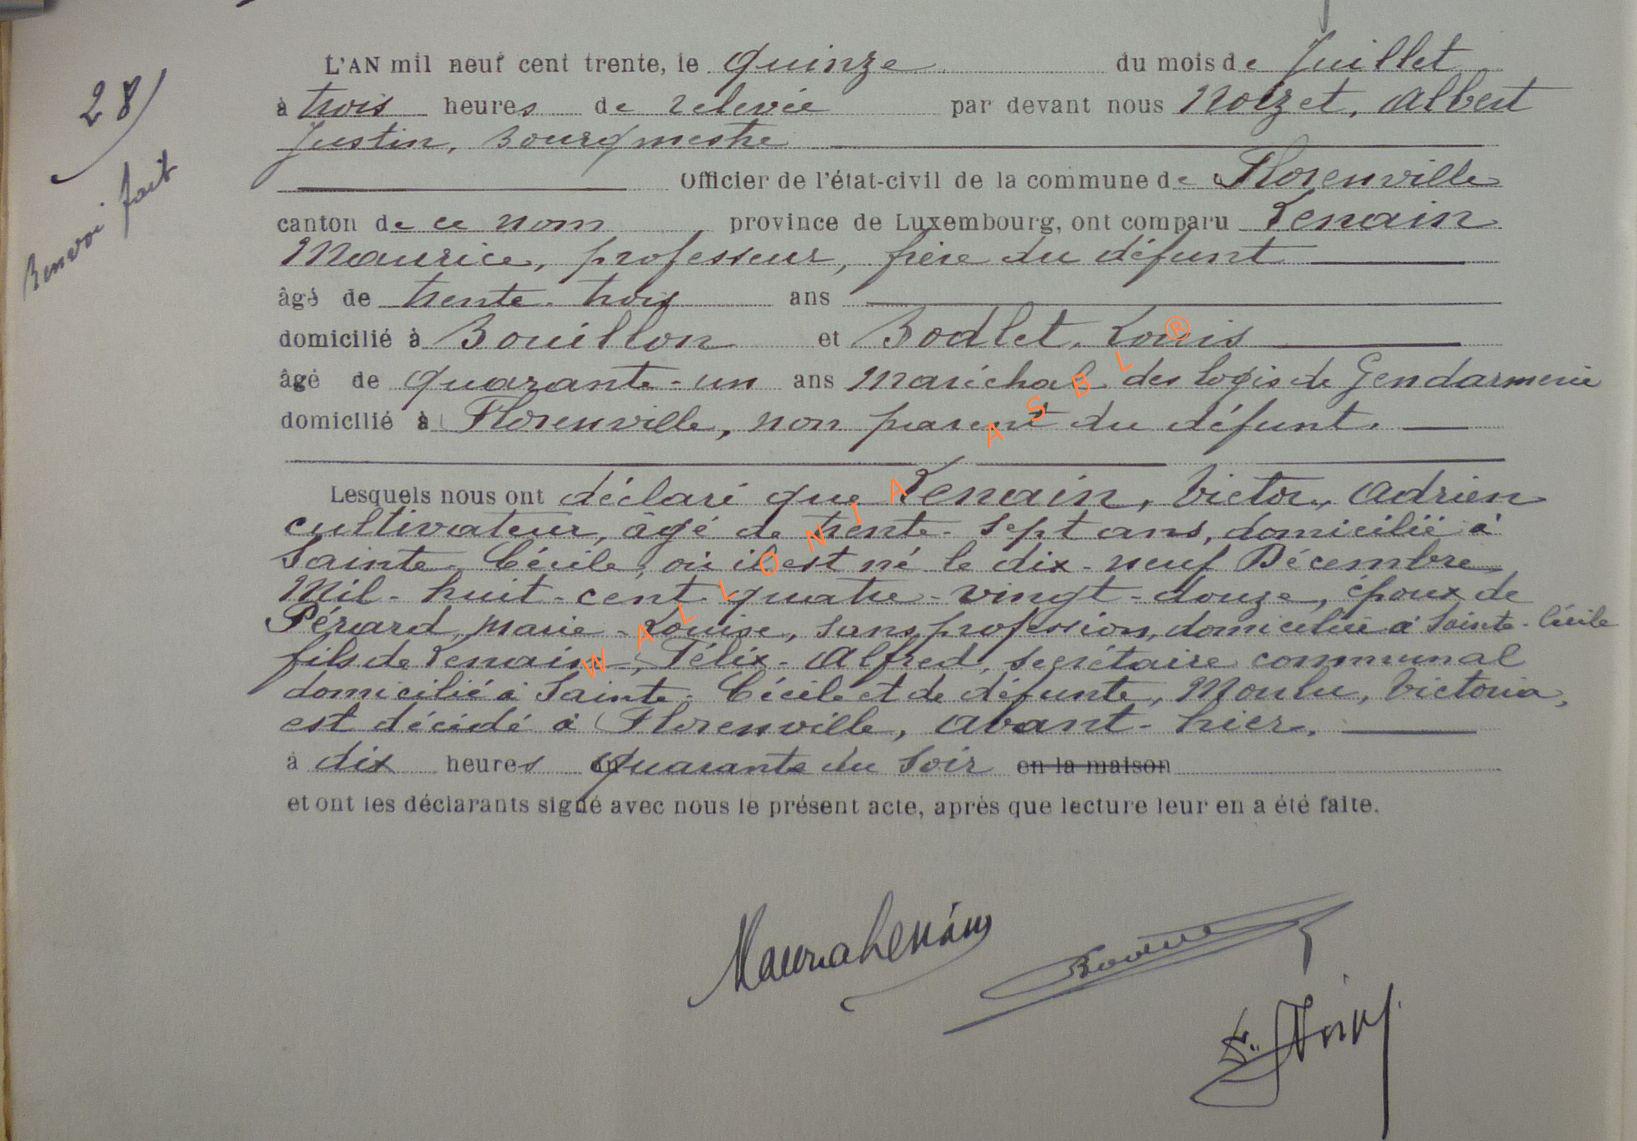 28
Renvoi fait
L'AN mil neuf cent trente, le quinze du mois de Juillet
à trois heures de relevée par devant nous Noizet, Albert
Justin, Bourgmestre
Officier de l'état-civil de la commune de Florenville
canton de ce nom province de Luxembourg, ont comparu Lenain
Maurice, professeur, frère du défunt
âgé de trente-trois ans
domicilié à Bouillon et Bodlet, Louis
âgé de quarante-un ans Maréchal des logis de Gendarmerie
domicilié à Florenville, non parent du défunt.
Lesquels nous ont déclaré que Lenain, Victor, Adrien
cultivateur, âgé de trente-sept ans, domicilié à
Sainte-Cécile, où il est né le dix-neuf Décembre
Mil-huit-cent-quatre-vingt-douze, époux de
Pérard, Marie-Louise, sans profession, domiciliée à Sainte-Cécile
fils de Lenain, Félix-Alfred, secrétaire communal
domicilié à Sainte-Cécile et de défunte, Moulu, Victoria,
est décédé à Florenville, avant-hier,
à dix heures quarante du soir en la maison
et ont les déclarants signé avec nous le présent acte, après que lecture leur en a été faite.
WALLONIA ASBL ®